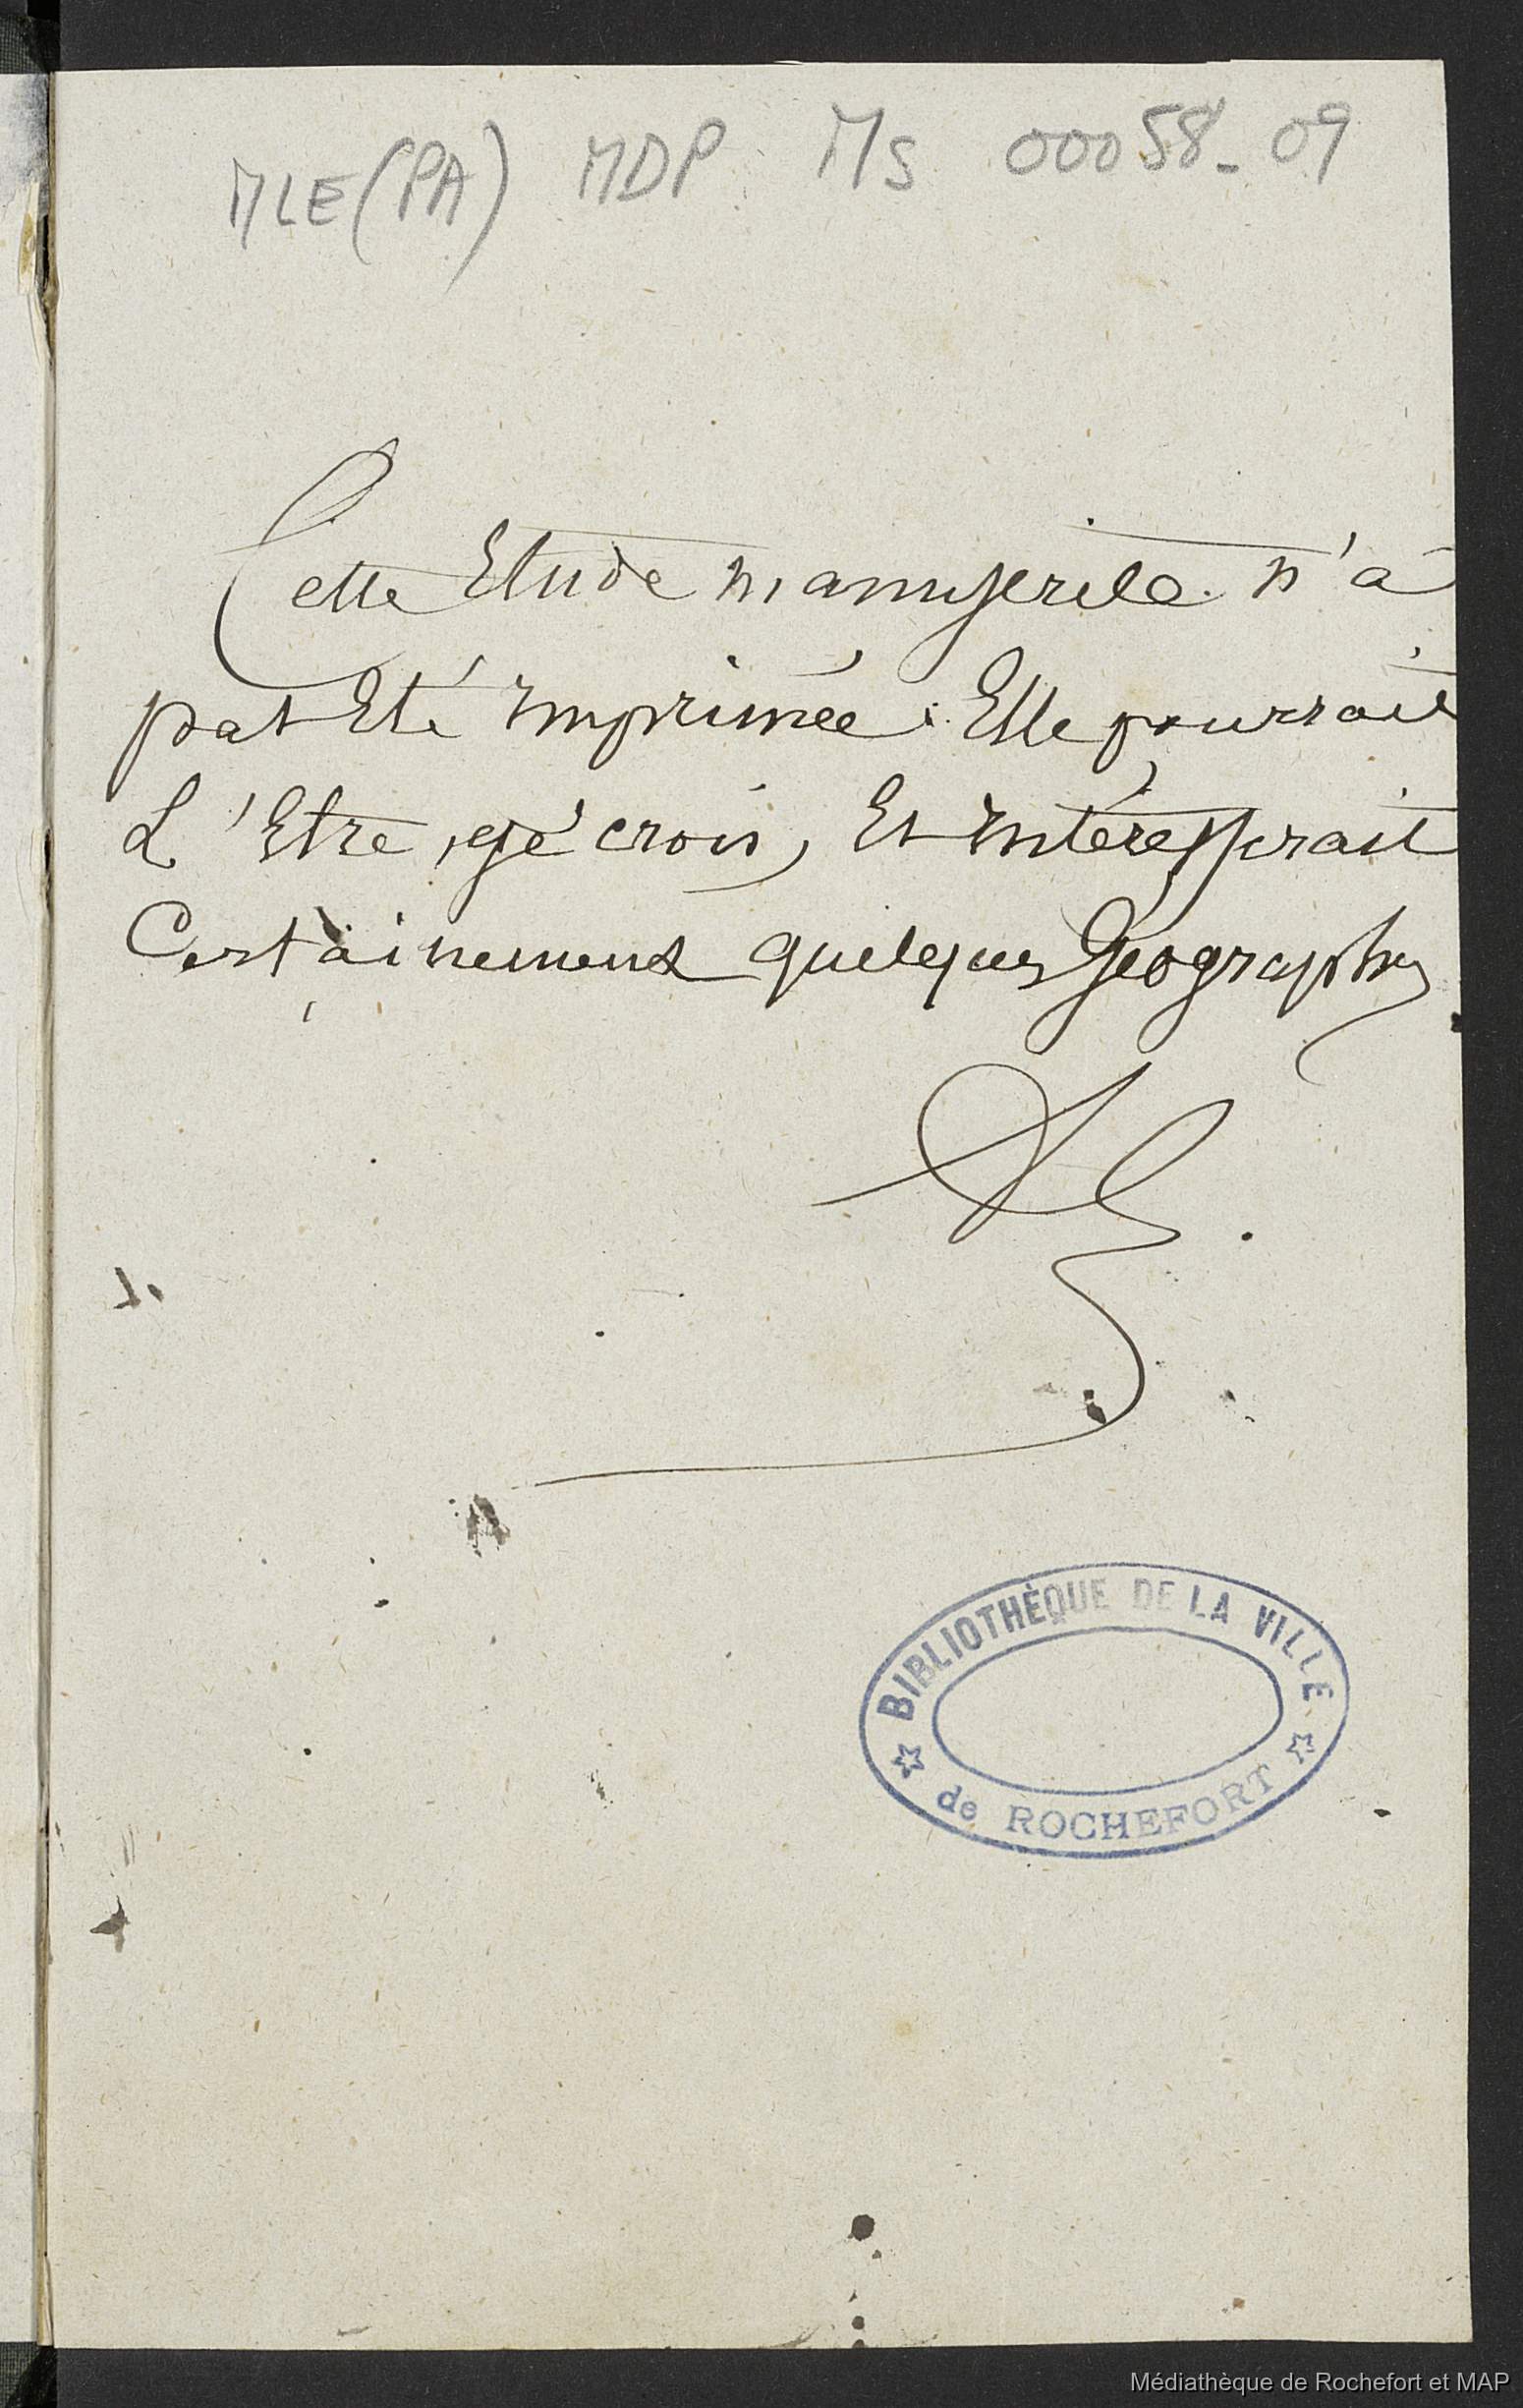 MLE(PA) MDP Ms 00058-09
Cette Etude manuscrite n'a
pas Eté imprimée. Elle pourrait
L'Etre, je crois, Et intéresserait
Certainement quelques Géographes
BIBLIOTHÈQUE DE LA VILLE
de ROCHEFORT
Médiathèque de Rochefort et MAP